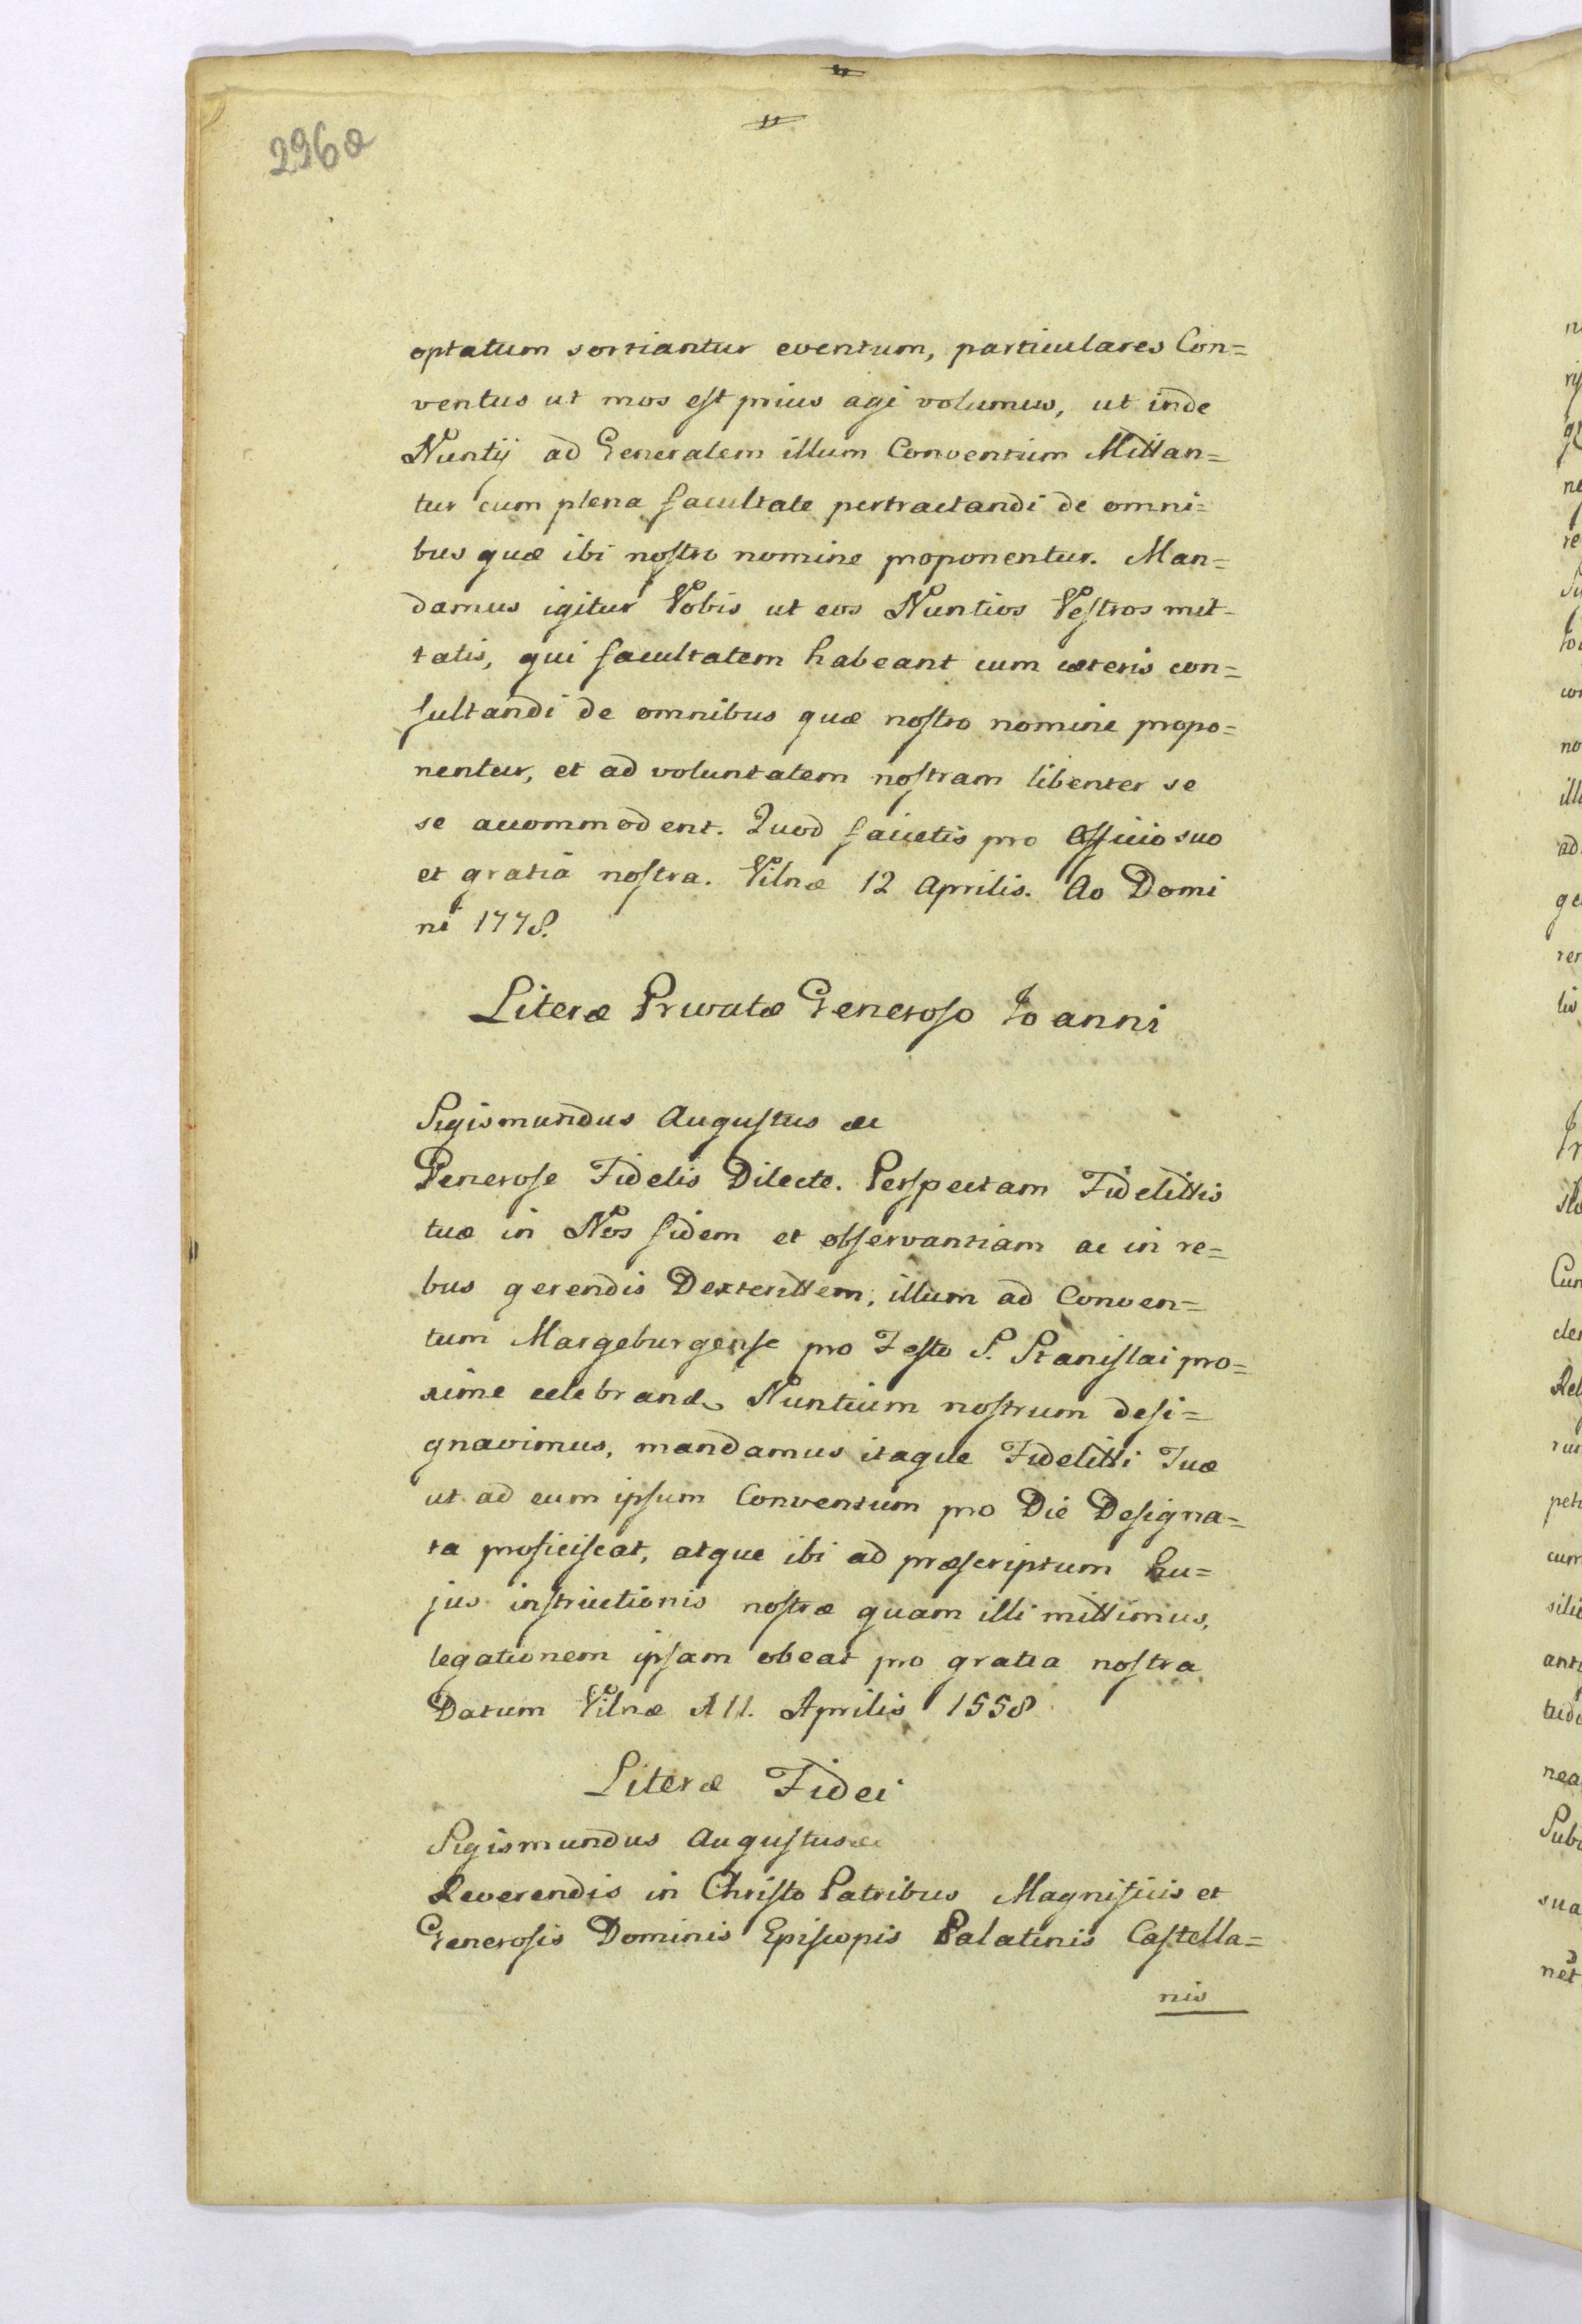 296a
optatum sortiantur eventum, particulares Con=
ventus ut mos est prius agi volumus, ut inde
Nuntij ad Generalem illum Conventum Mittan=
tur cum plena facultate pertractandi de omni=
bus quæ ibi nostro nomine proponentur. Man=
damus igitur Vobis ut eos Nuntios Vestros mit-
tatis, qui facultatem habeant cum cæteris con=
sultandi de omnibus quæ nostro nomine propo=
nentur, et ad voluntatem nostram libenter se
se accommodent. Quod facietis pro Officio suo
et gratia nostra. Vilnæ 12 Aprilis. Ao Domi
ni 1778.
Literæ Privatæ Generoso Joanni
Sigismundus Augustus &c
Generose Fidelis Dilecte. Perspectam Fidelittis
tuæ in Nos fidem et observantiam ac in re=
bus gerendis Dexterittem, illum ad Conven=
tum Margeburgense pro Festo S. Stanislai pro=
xime celebrand Nuntium nostrum desi=
gnavimus, mandamus itaque Fidelitti Tuæ
ut ad eum ipsum Conventum pro Die Designa=
ta proficiscat, atque ibi ad præscriptum hu=
jus instructionis nostræ quam illi mittimus,
legationem ipsam obeat pro gratia nostra
Datum Vilnæ A 11. Aprilis 1558
Literæ Fidei
Sigismundus Augustus &c
Reverendis in Christo Patribus Magnificis et
Generosis Dominis Episcopis Palatinis Castella=
nis